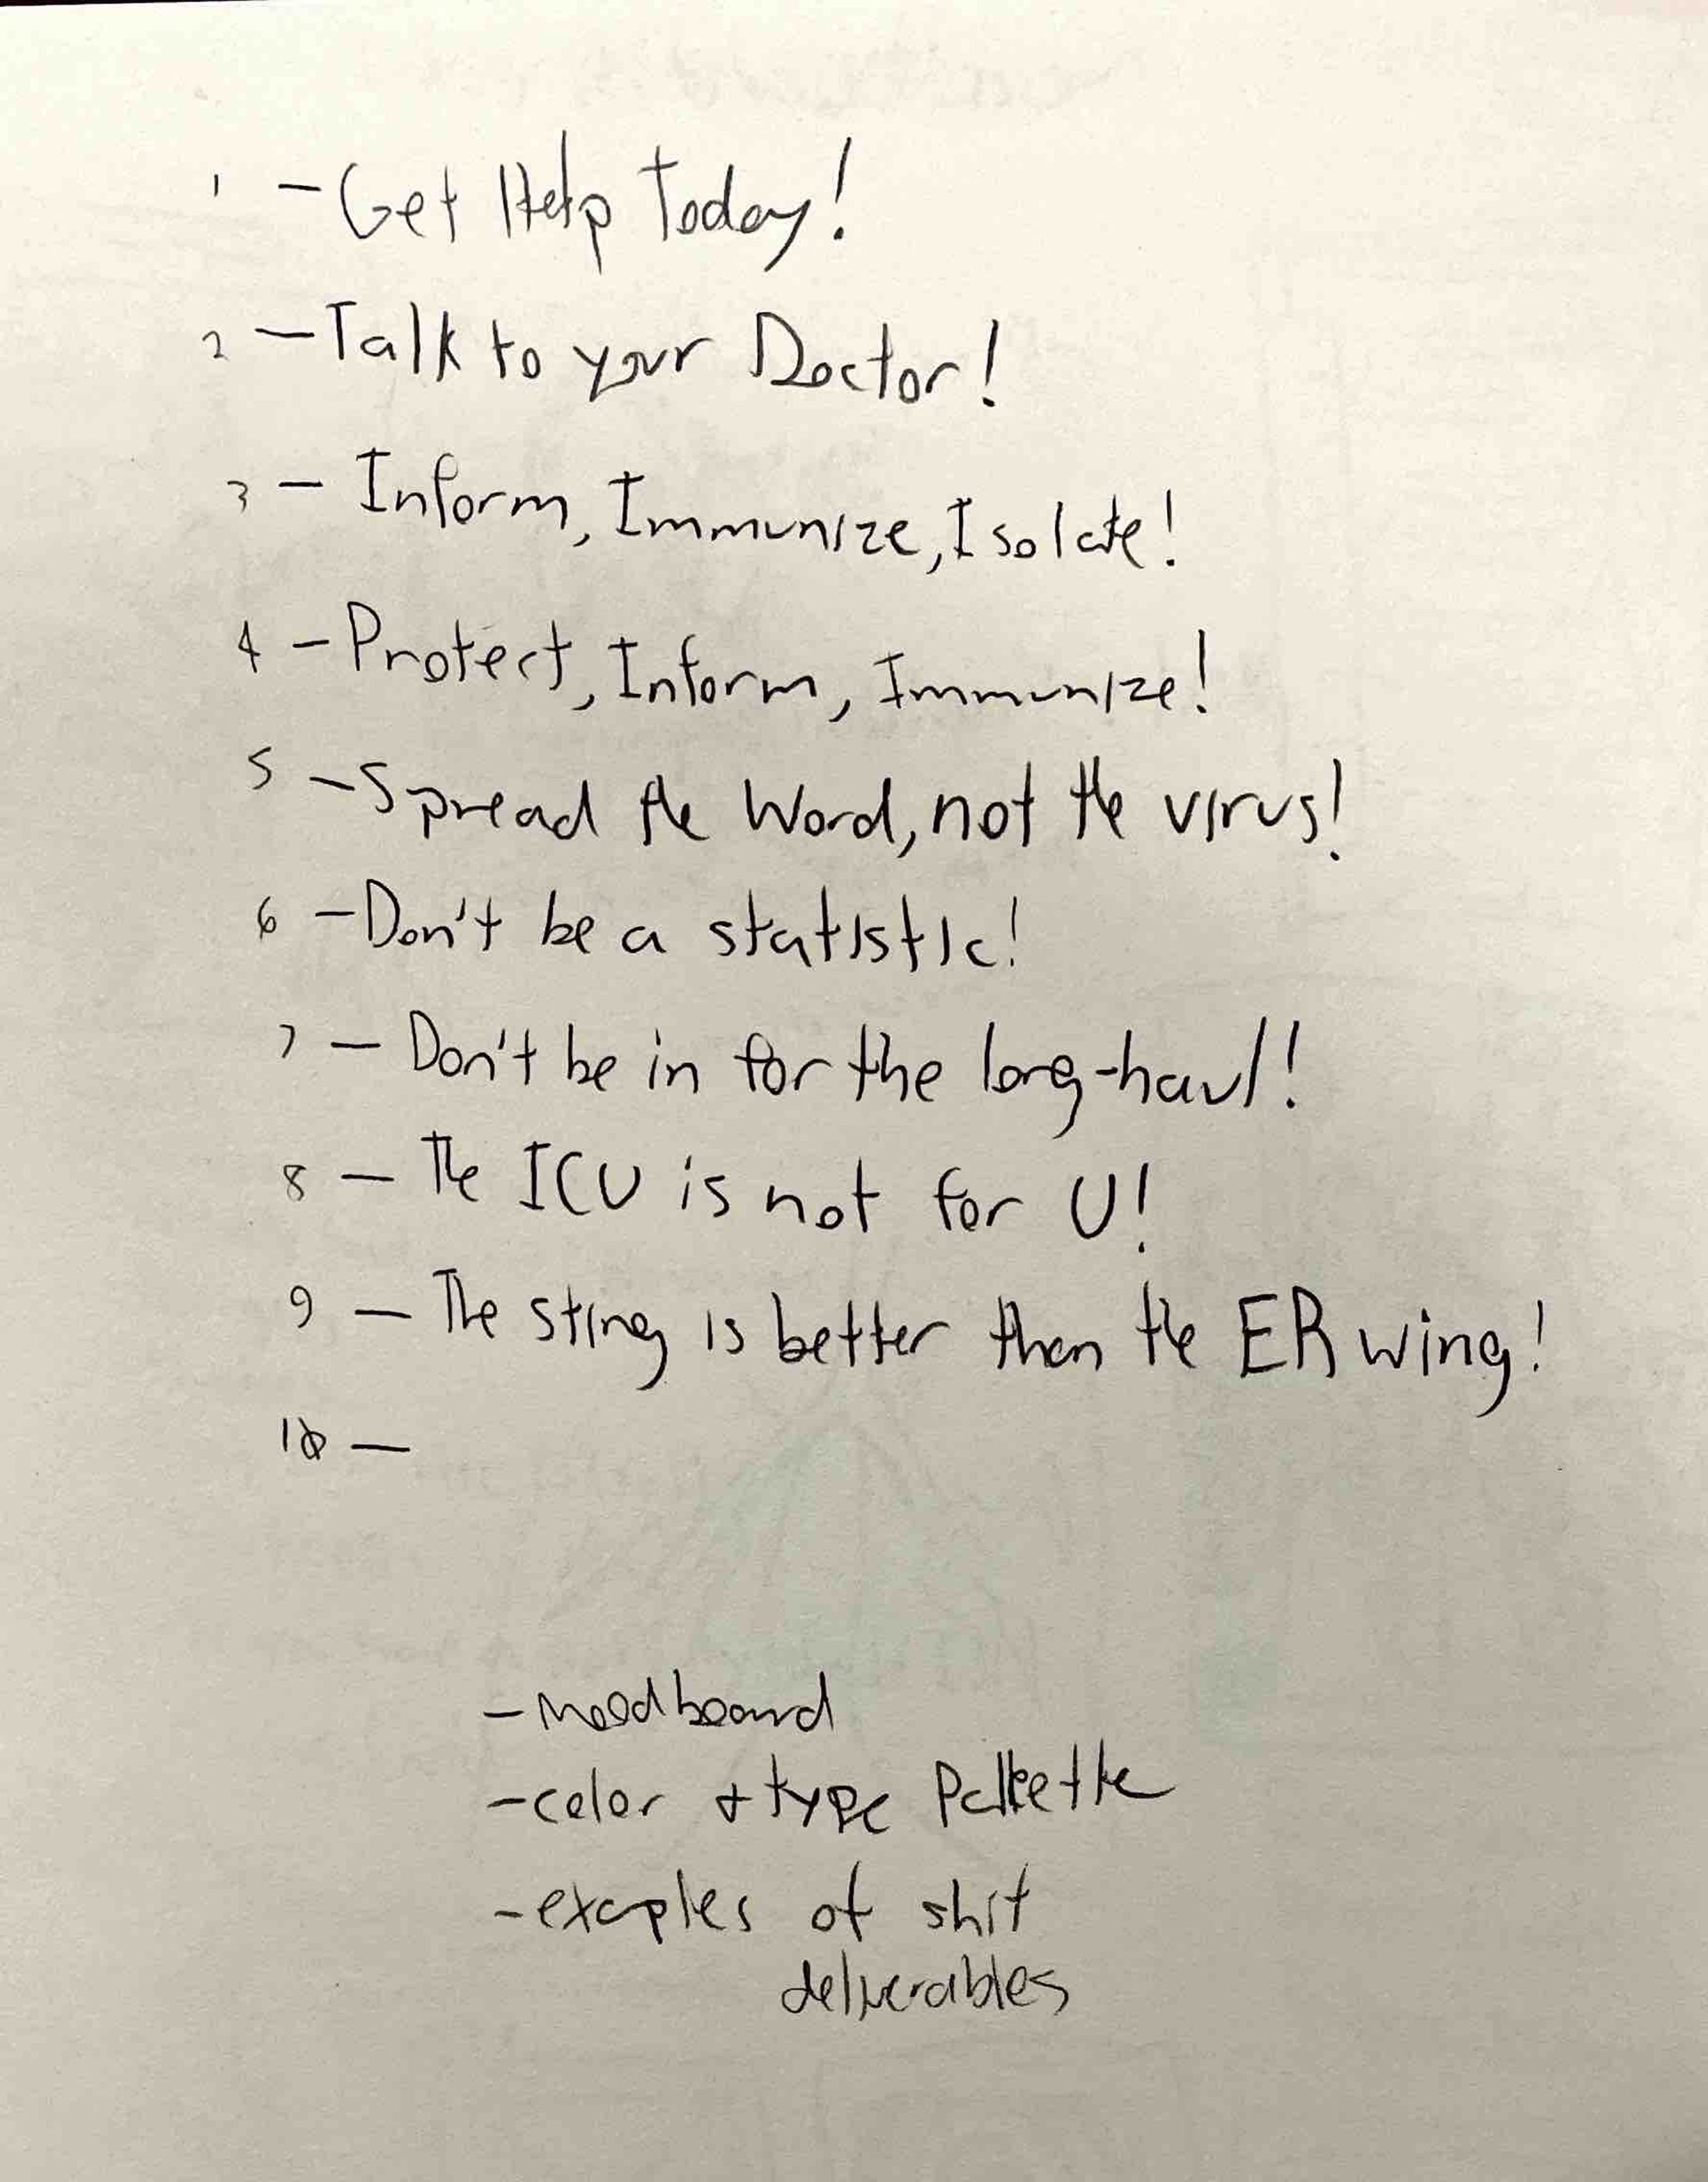 1 - Get Help Today!
2 - Talk to your Doctor!
3 - Inform, Immunize, Isolate!
4 - Protect, Inform, Immunize!
5 - Spread the Word, not the virus!
6 - Don't be a statistic!
7 - Don't be in for the long-haul!
8 - The ICU is not for U!
9 - The sting is better than the ER wing!
10 -
- moodboard
- color + type Pallette
- exaples of shit
deliverables